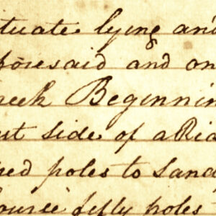 tuate lying and
foresaid and on
reek Beginnin
ut side of a Rid
red poles to Sand
ourse fifty poles